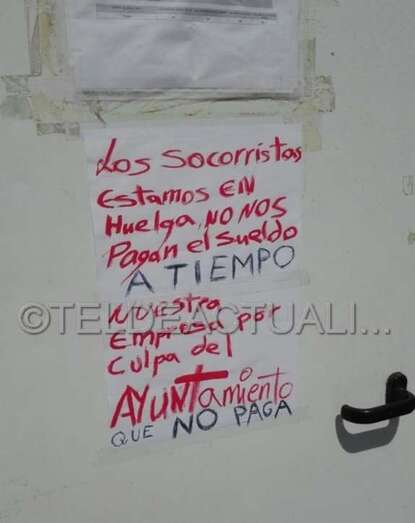 Los Socorristas
Estamos EN
Huelga, NO NOS
Pagan el Sueldo
A TIEMPO
Nuestra
Empresa por
Culpa del
AYUNTamiento
QUE NO PAGA
©TELDEACTUALI...